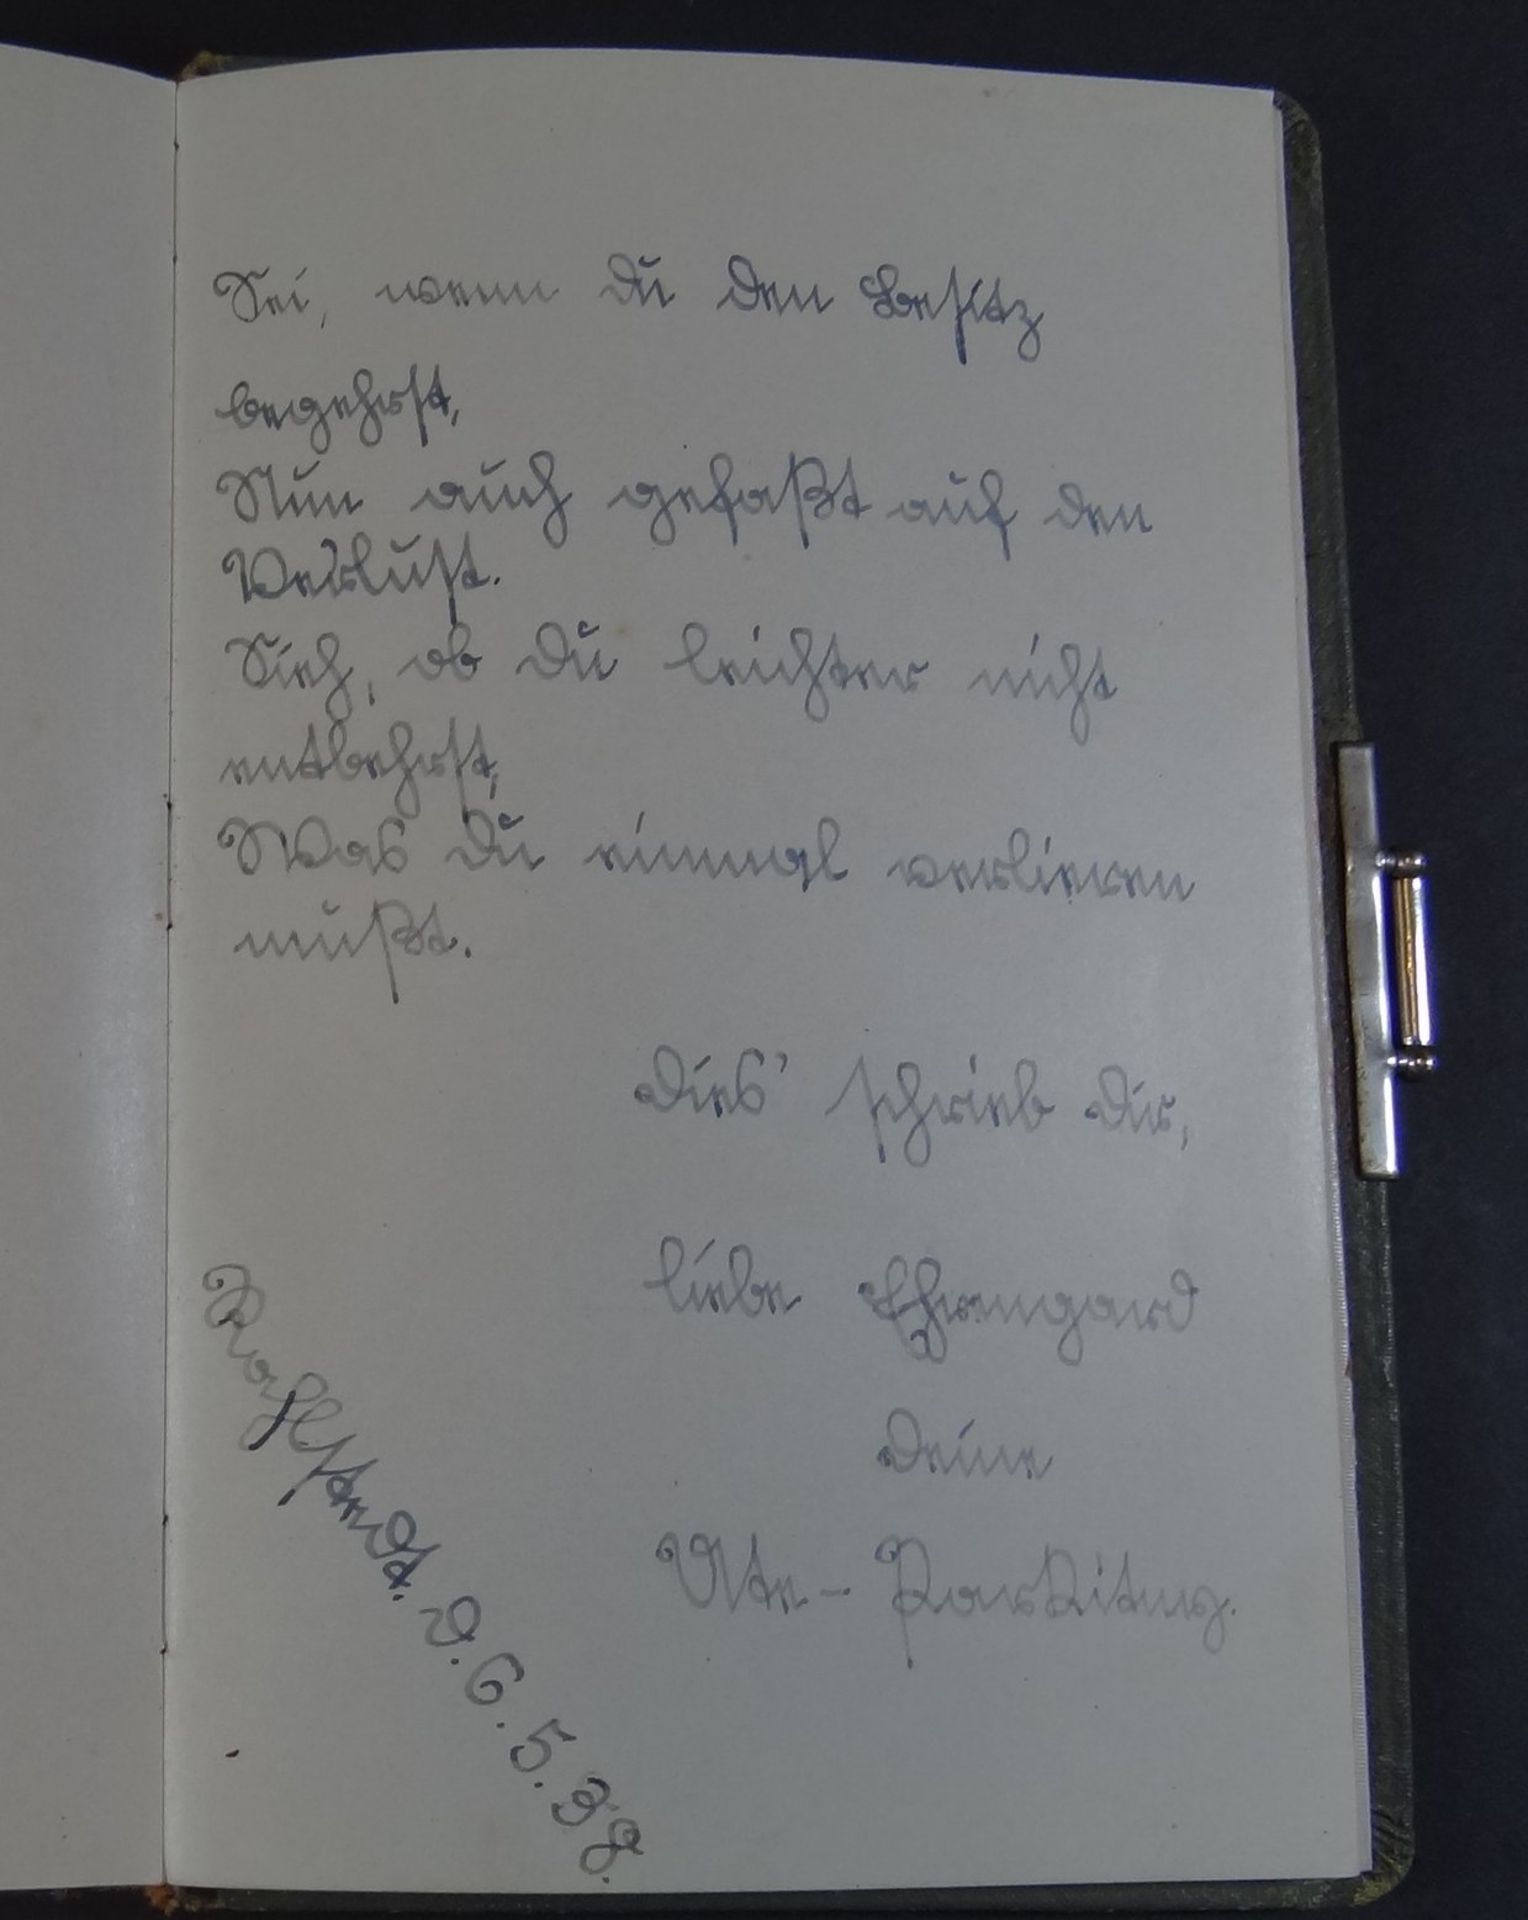 Sei, wenn du den Besitz
begehrst,
Nun auch gefaßt auf den
Verlust.
Sieh, ob du leichter nicht
entbehrst,
Was du einmal verlieren
mußt.
Dies' schrieb Dir,
liebe Ehrengard
Deine
Ute-
d. 6. 5. 39.